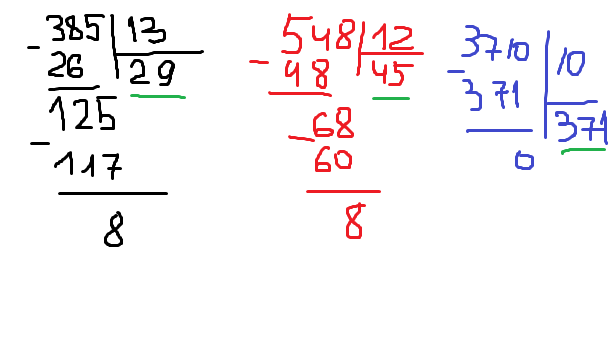 385 13
- 26 29
125
- 117
8
548 12
- 48 45
68
- 60
8
3710 10
- 371 371
0